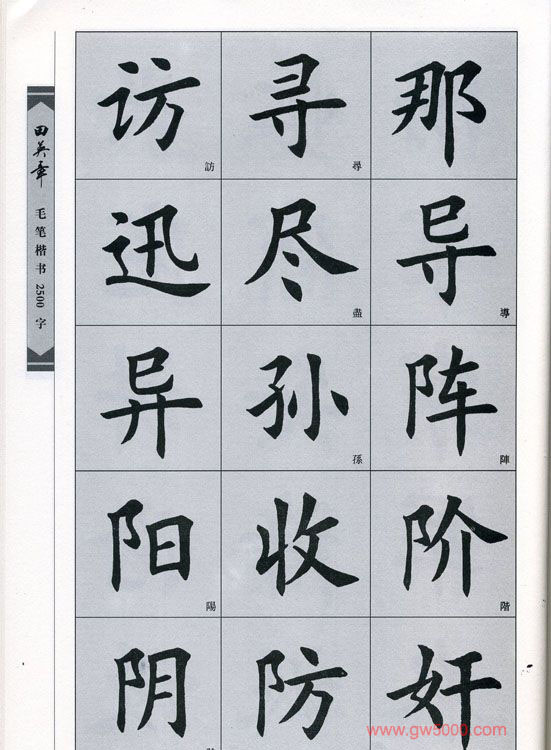 田英章 毛笔楷书2500字
访訪 寻尋 那
迅 尽盡 导導
异 孙孫 阵陣
阳陽 收 阶階
阴 防 奸
www.gw5000.com